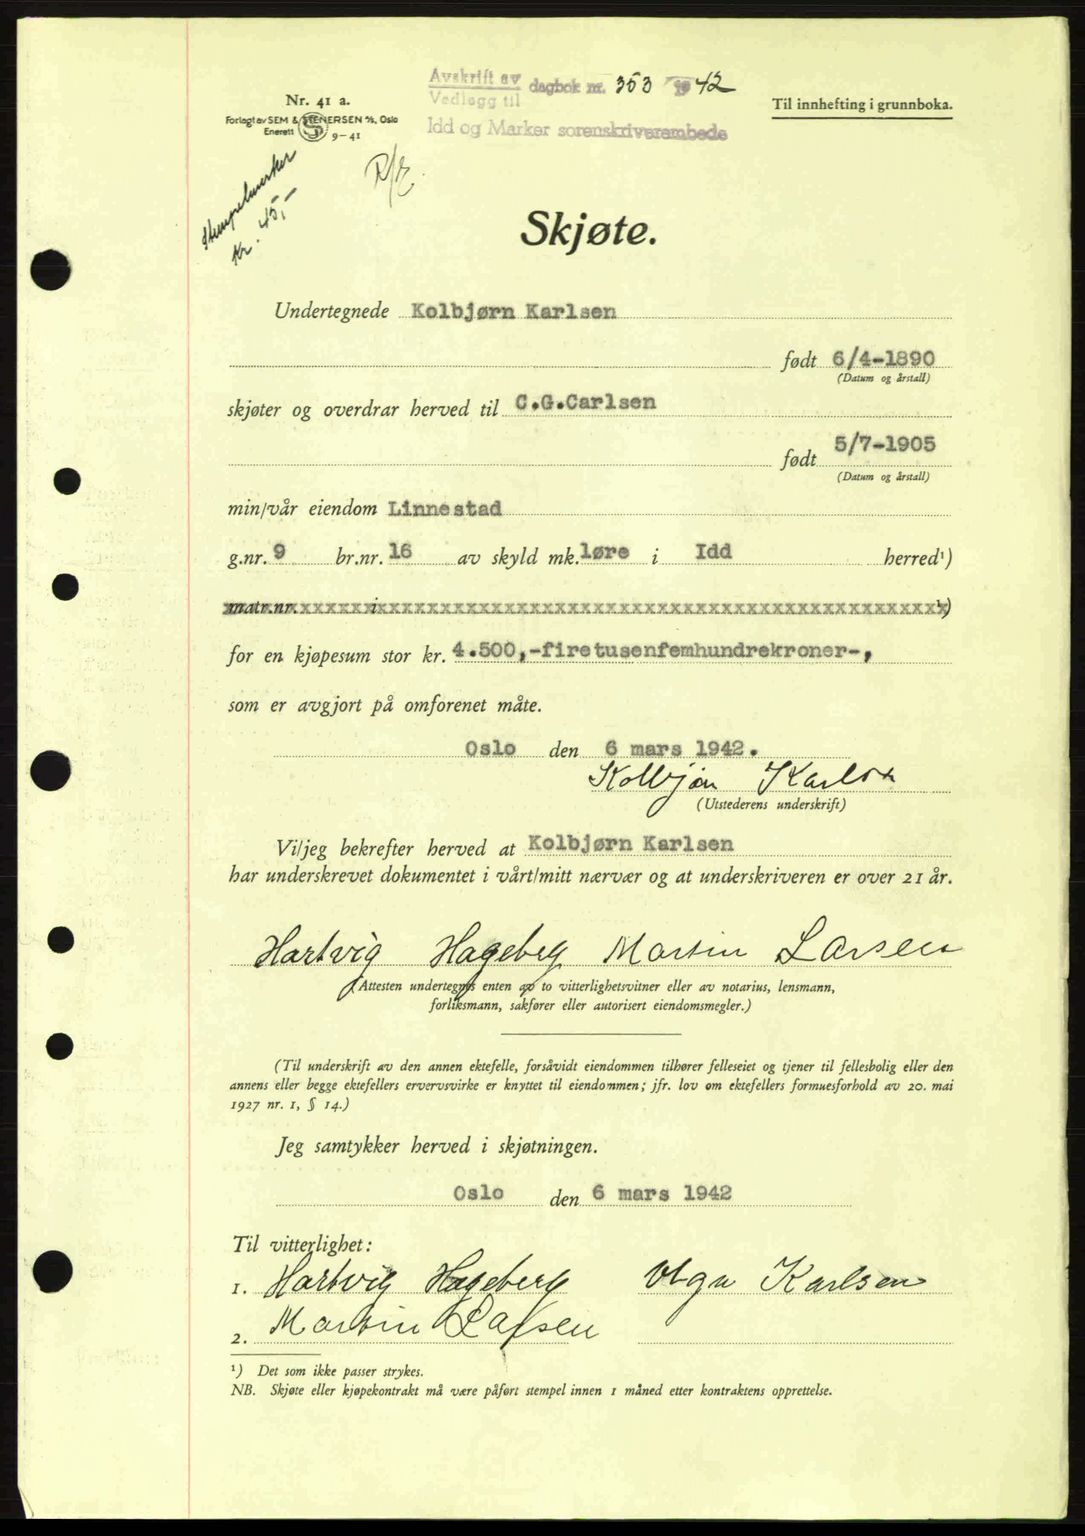 Avskrift av dagbok nr. 353 1942
Vedlegg til
Idd og Marker sorenskriverembede
Nr. 41 a.
Forlagt av SEM & STENERSEN A/S, Oslo
Enerett 9-41
Til innhefting i grunnboka.
Stempelmerker
kr. 45,-
Skjøte.
Undertegnede Kolbjørn Karlsen
født 6/4-1890
(Datum og årstall)
skjøter og overdrar herved til C.G.Carlsen
født 5/7-1905
(Datum og årstall)
min/vår eiendom Linnestad
g.nr. 9 br.nr. 16 av skyld mk. løre i Idd herred¹)
matr.nr.xxxxxxixxxxxxxxxxxxxxxxxxxxxxxxxxxxxxxxxxxxxxxx¹)
for en kjøpesum stor kr. 4.500,-firetusenfemhundrekroner-,
som er avgjort på omforenet måte.
Oslo den 6 mars 1942.
Kolbjørn Karlsen
(Utstederens underskrift)
Vi/jeg bekrefter herved at Kolbjørn Karlsen
har underskrevet dokumentet i vårt/mitt nærvær og at underskriveren er over 21 år.
Hartvig Hageberg Martin Larsen
(Attesten undertegnes enten av to vitterlighetsvitner eller av notarius, lensmann,
forliksmann, sakfører eller autorisert eiendomsmegler.)
(Til underskrift av den annen ektefelle, forsåvidt eiendommen tilhører felleseiet og tjener til fellesbolig eller den
annens eller begge ektefellers ervervsvirke er knyttet til eiendommen; jfr. lov om ektefellers formuesforhold av 20. mai
1927 nr. 1, § 14.)
Jeg samtykker herved i skjøtningen.
Oslo den 6 mars 1942
Til vitterlighet:
1. Hartvig Hageberg Olga Karlsen
2. Martin Larsen
¹) Det som ikke passer strykes.
NB. Skjøte eller kjøpekontrakt må være påført stempel innen 1 måned etter kontraktens opprettelse.